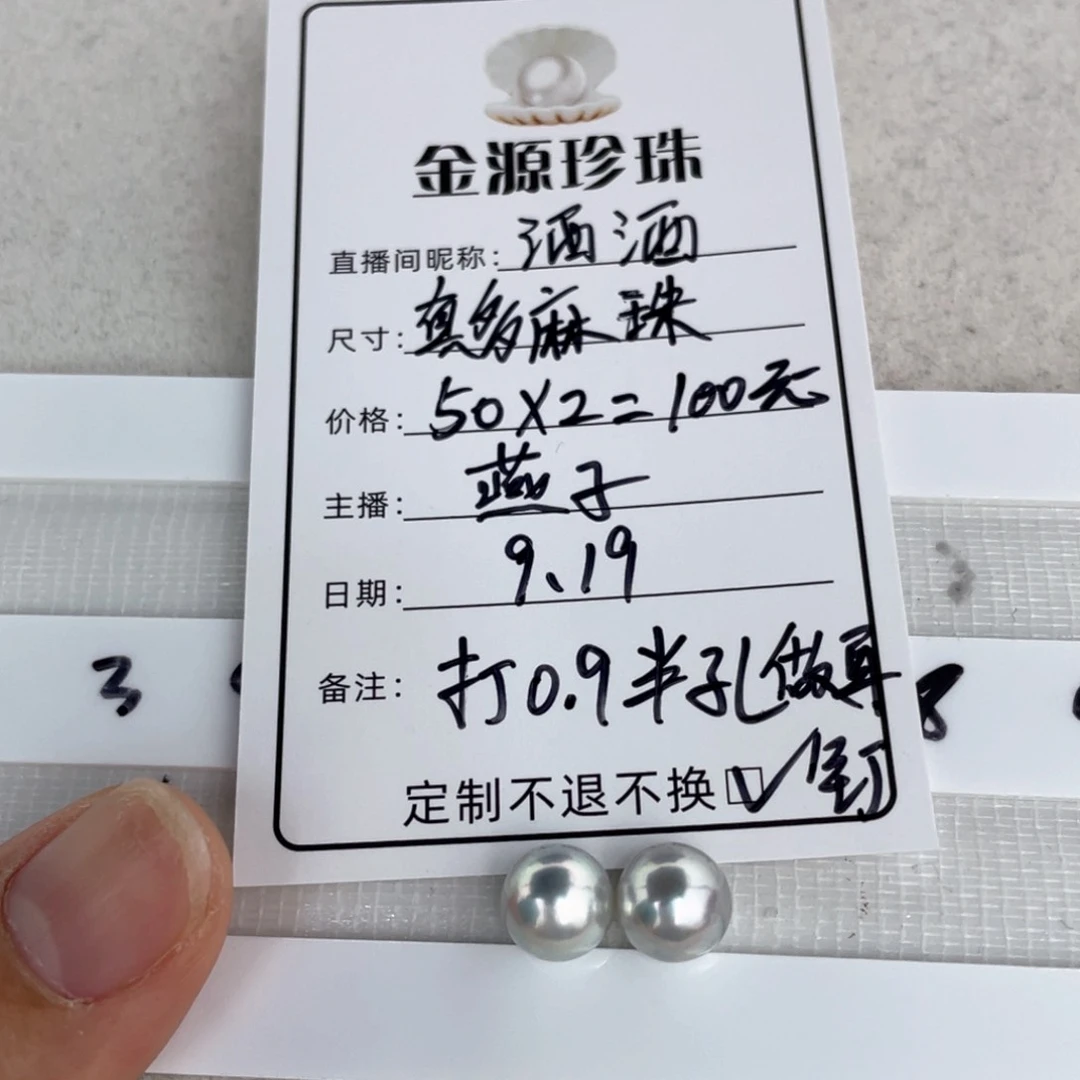 金源珍珠
直播间昵称: 洒洒
尺寸: 真多麻珠
价格: 50×2=100元
主播: 燕子
日期: 9、19
备注: 打0.9半孔做耳
钉
定制不退不换☑
3
8